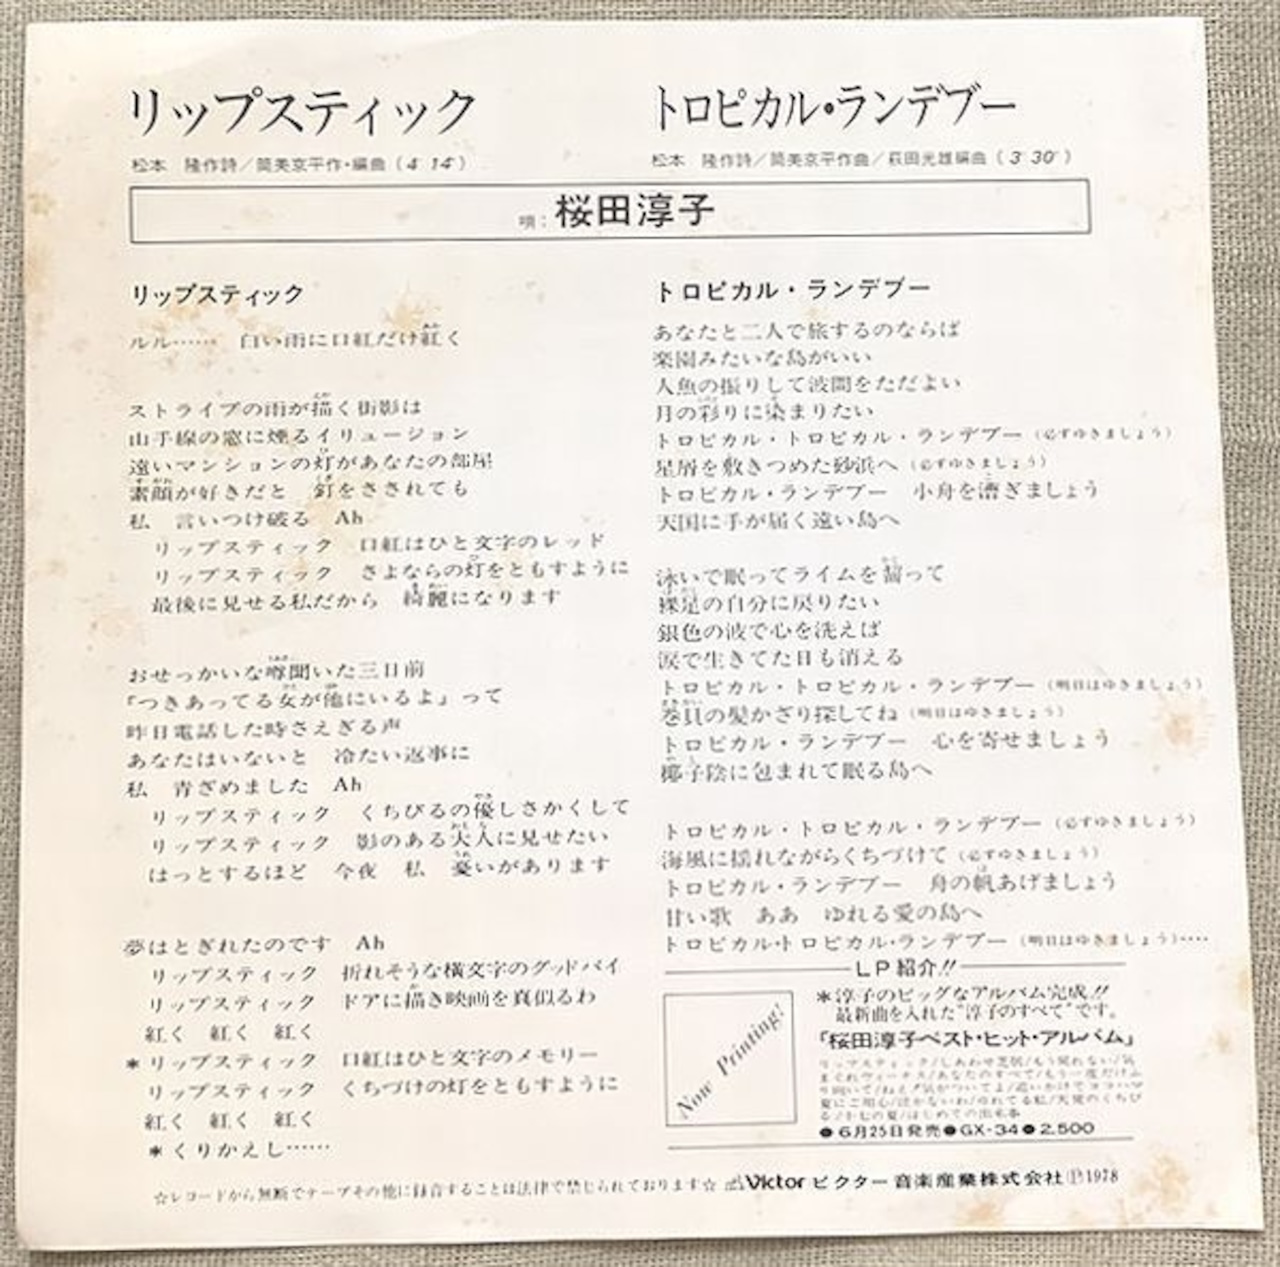 リップスティック
松本 隆作詩/筒美京平作・編曲(4′14″)
トロピカル・ランデブー
松本 隆作詩/筒美京平作曲/萩田光雄編曲(3′30″)
唄：桜田淳子
リップスティック
ルル…… 白い雨に口紅だけ紅く
ストライプの雨が描く街影は
山手線の窓に煙るイリュージョン
遠いマンションの灯があなたの部屋
素顔が好きだと 釘をさされても
私 言いつけ破る Ah
リップスティック 口紅はひと文字のレッド
リップスティック さよならの灯をともすように
最後に見せる私だから 綺麗になります
おせっかいな噂聞いた三日前
「つきあってる女が他にいるよ」って
昨日電話した時さえぎる声
あなたはいないと 冷たい返事に
私 青ざめました Ah
リップスティック くちびるの優しさかくして
リップスティック 影のある大人に見せたい
はっとするほど 今夜 私 憂いがあります
夢はとぎれたのです Ah
リップスティック 折れそうな横文字のグッドバイ
リップスティック ドアに描き映画を真似るわ
紅く 紅く 紅く
＊リップスティック 口紅はひと文字のメモリー
リップスティック くちづけの灯をともすように
紅く 紅く 紅く
＊くりかえし……
トロピカル・ランデブー
あなたと二人で旅するのならば
楽園みたいな島がいい
人魚の振りして波間をただよい
月の彩りに染まりたい
トロピカル・トロピカル・ランデブー(必ずゆきましょう)
星屑を敷きつめた砂浜へ(必ずゆきましょう)
トロピカル・ランデブー 小舟を漕ぎましょう
天国に手が届く遠い島へ
泳いで眠ってライムを齧って
裸足の自分に戻りたい
銀色の波で心を洗えば
涙で生きてた日も消える
トロピカル・トロピカル・ランデブー(明日はゆきましょう)
巻貝の髪かざり探してね(明日はゆきましょう)
トロピカル・ランデブー 心を寄せましょう
椰子陰に包まれて眠る島へ
トロピカル・トロピカル・ランデブー(必ずゆきましょう)
海風に揺れながらくちづけて(必ずゆきましょう)
トロピカル・ランデブー 舟の帆あげましょう
甘い歌 ああ ゆれる愛の島へ
トロピカル・トロピカル・ランデブー(明日はゆきましょう)‥‥
LP紹介!!
Now Printing!
＊淳子のビッグなアルバム完成!!
最新曲を入れた"淳子のすべて"です。
「桜田淳子ベスト・ヒット・アルバム」
リップスティック/しあわせ芝居/もう戻れない/気
まぐれヴィーナス/あなたのすべて/もう一度だけふ
り向いて/ねえ!気がついてよ/追いかけてヨコハマ
夏にご用心/泣かないわ/ゆれてる私/天使のくちび
る/十七の夏/はじめての出来事
●6月25日発売●GX-34●2,500
☆レコードから無断でテープその他に録音することは法律で禁じられております☆
Victor ビクター音楽産業株式会社 Ⓟ1978